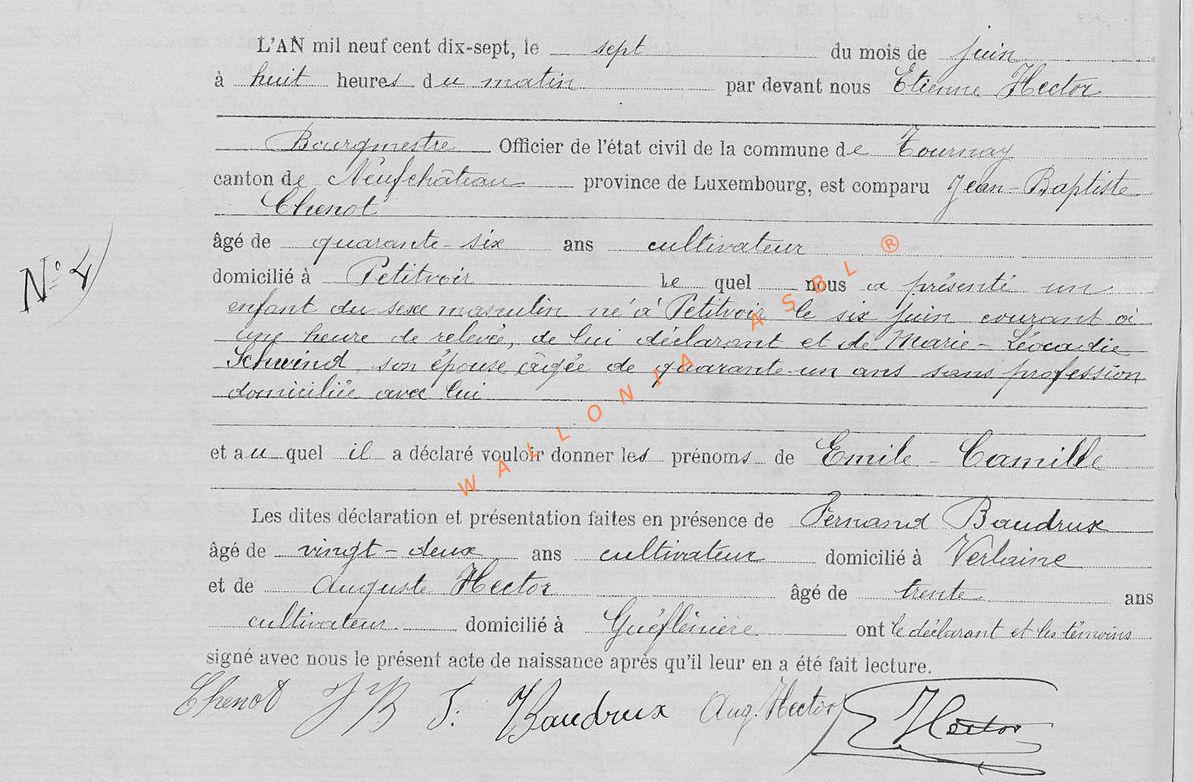 L'AN mil neuf cent dix-sept, le sept du mois de juin
à huit heures du matin par devant nous Étienne Hector
Bourgmestre Officier de l'état civil de la commune de Tournay
canton de Neufchâteau province de Luxembourg, est comparu Jean-Baptiste
Chenot
âgé de quarante-six ans cultivateur
domicilié à Petitvoir Le quel nous a présenté un
N° 4
enfant du sexe masculin né à Petitvoir le six juin courant à
une heure de relevée, de lui déclarant et de Marie-Léocadie
Schwind son épouse âgée de quarante-un ans sans profession
domiciliée avec lui
et au quel il a déclaré vouloir donner les prénoms de Emile-Camille
Les dites déclaration et présentation faites en présence de Fernand Baudrux
âgé de vingt-deux ans cultivateur domicilié à Verlaine
et de Auguste Hector âgé de trente ans
cultivateur domicilié à ont le déclarant et les témoins
signé avec nous le présent acte de naissance après qu'il leur en a été fait lecture.
Chenot J B F. Baudrux Aug. Hector E Hector
WALLONIA ASBL ®